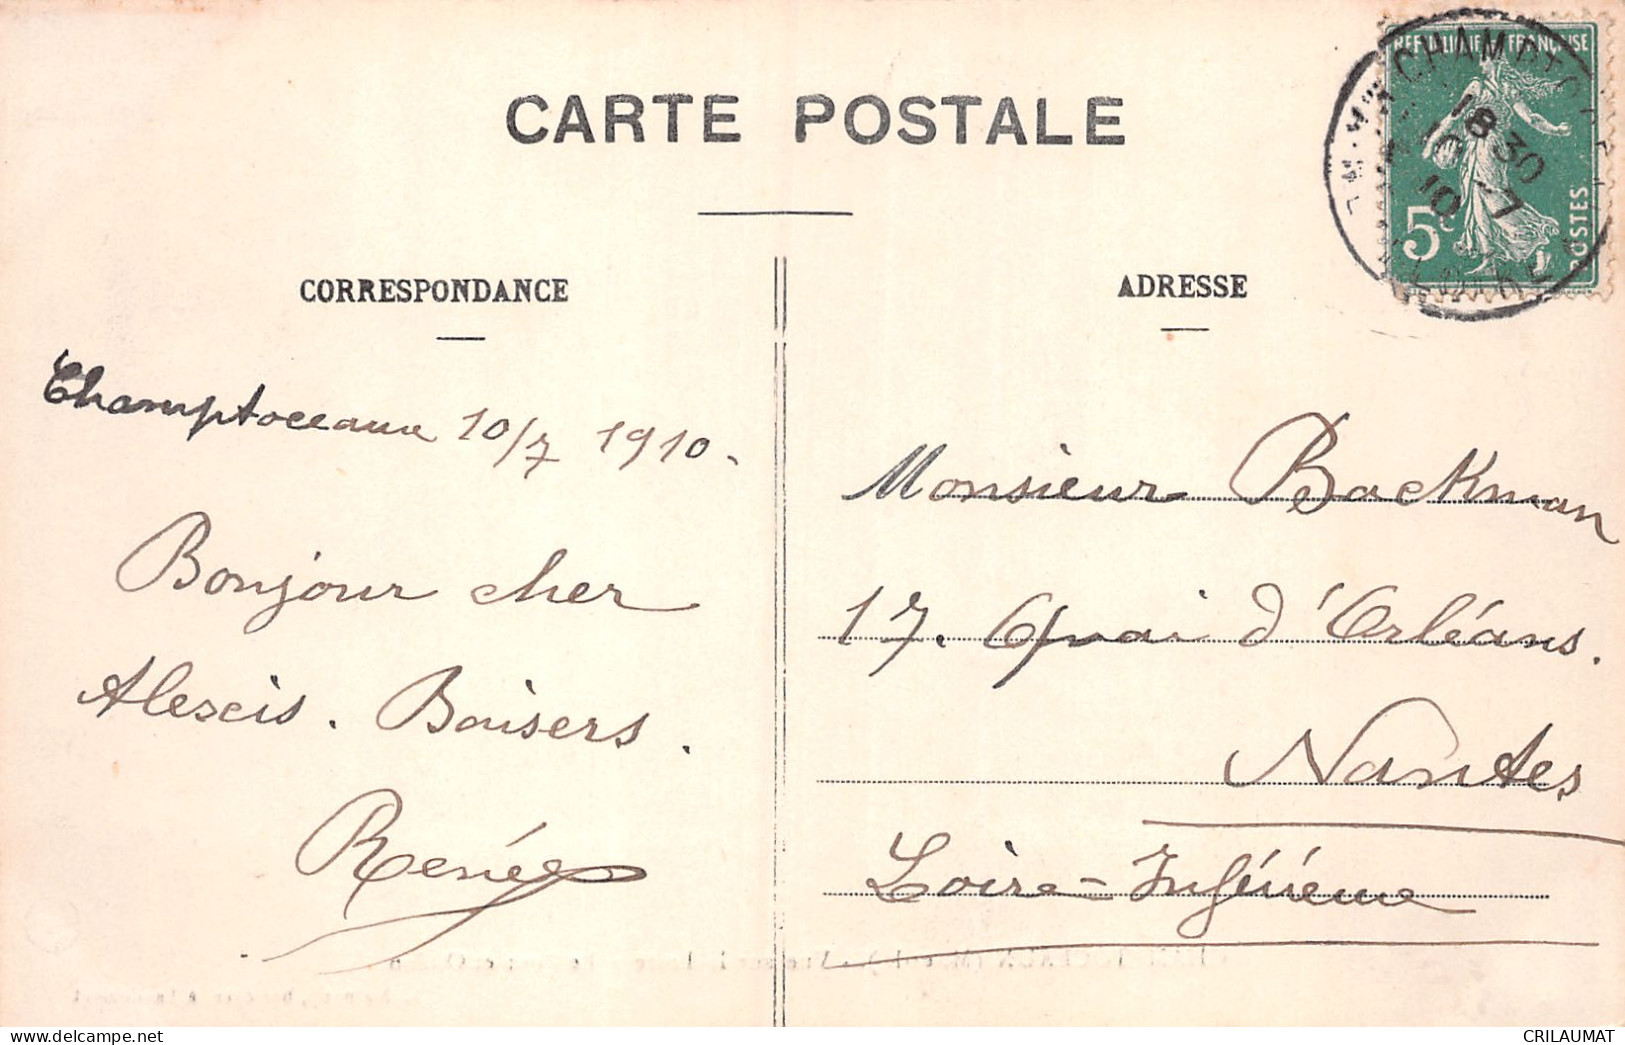 CARTE POSTALE
CORRESPONDANCE
ADRESSE
REPUBLIQUE FRANÇAISE
5c
POSTES
18 30
10 7
10
Champtoceaux 10/7 1910.
Bonjour cher
Alexis. Baisers.
Renée
Monsieur Backman
17. Quai d'Orléans.
Nantes
Loire-Inférieure
delcampe.net
CRILAUMAT